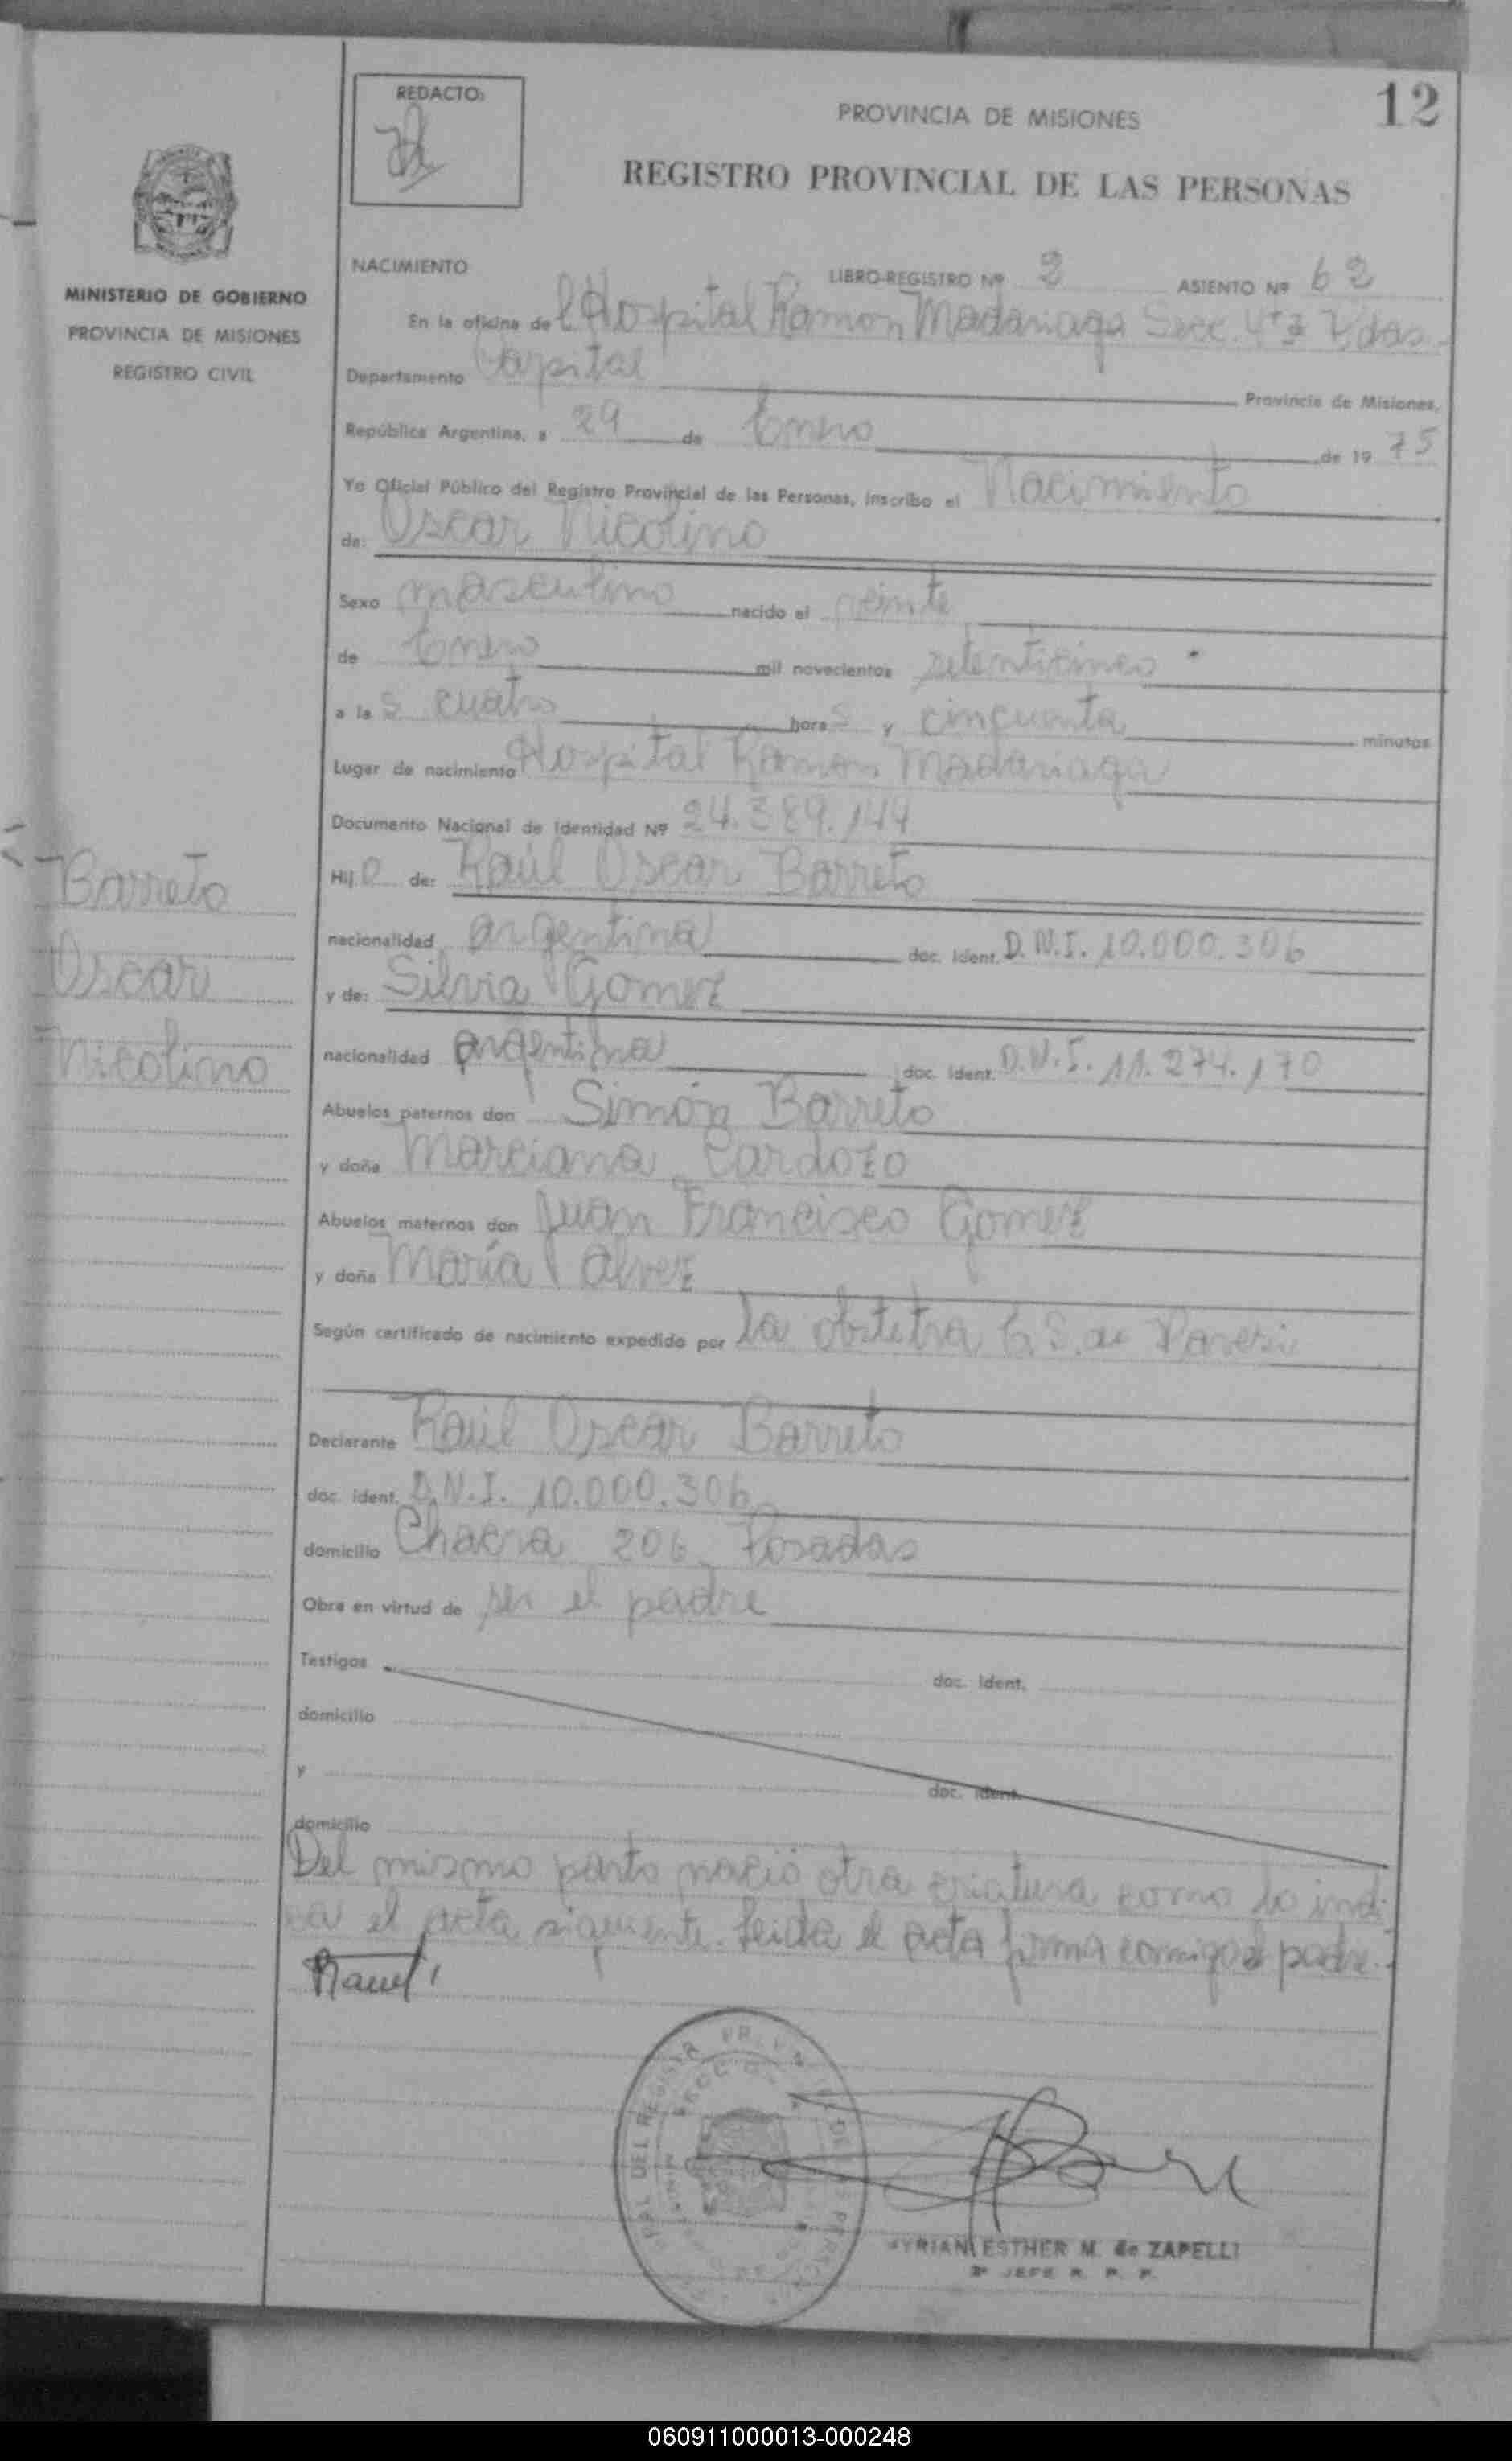 12
REDACTO:
PROVINCIA DE MISIONES
REGISTRO PROVINCIAL DE LAS PERSONAS
MINISTERIO DE GOBIERNO
PROVINCIA DE MISIONES
REGISTRO CIVIL
NACIMIENTO LIBRO-REGISTRO Nº 2 ASIENTO Nº 62
En la oficina del Hospital Ramon Madariaga Secc. 4ta Pdas.
Departamento Capital Provincia de Misiones,
República Argentina, a 29 de Enero de 1975
Yo Oficial Público del Registro Provincial de las Personas, inscribo el Nacimiento
de: Oscar Nicolino
Sexo masculino nacido el veinte
de Enero mil novecientos setenticinco
a las cuatro horas y cincuenta minutos
Lugar de nacimiento Hospital Ramon Madariaga
Documento Nacional de Identidad Nº 24.389.144
Barreto
Oscar
Nicolino
Hijo de: Raúl Oscar Barreto
nacionalidad argentina doc. ident. D.N.I. 10.000.306
y de: Silvia Gomez
nacionalidad argentina doc. ident. D.N.I. 11.274.170
Abuelos paternos don Simón Barreto
y doña Marciana Cardozo
Abuelos maternos don Juan Francisco Gomez
y doña María Alvez
Según certificado de nacimiento expedido por la obstetra G.S. de Paresi
Declarante Raúl Oscar Barreto
doc. ident. D.N.I. 10.000.306
domicilio Chacra 206 Posadas
Obra en virtud de ser el padre
Testigos doc. ident.
domicilio
y doc. ident.
domicilio
Del mismo parto nació otra criatura como lo indi
ca el acta siguiente. Leida el acta firma conmigo el padre.
MYRIAN ESTHER M. de ZAPELLI
2º JEFE R. P. P.
060911000013-000248